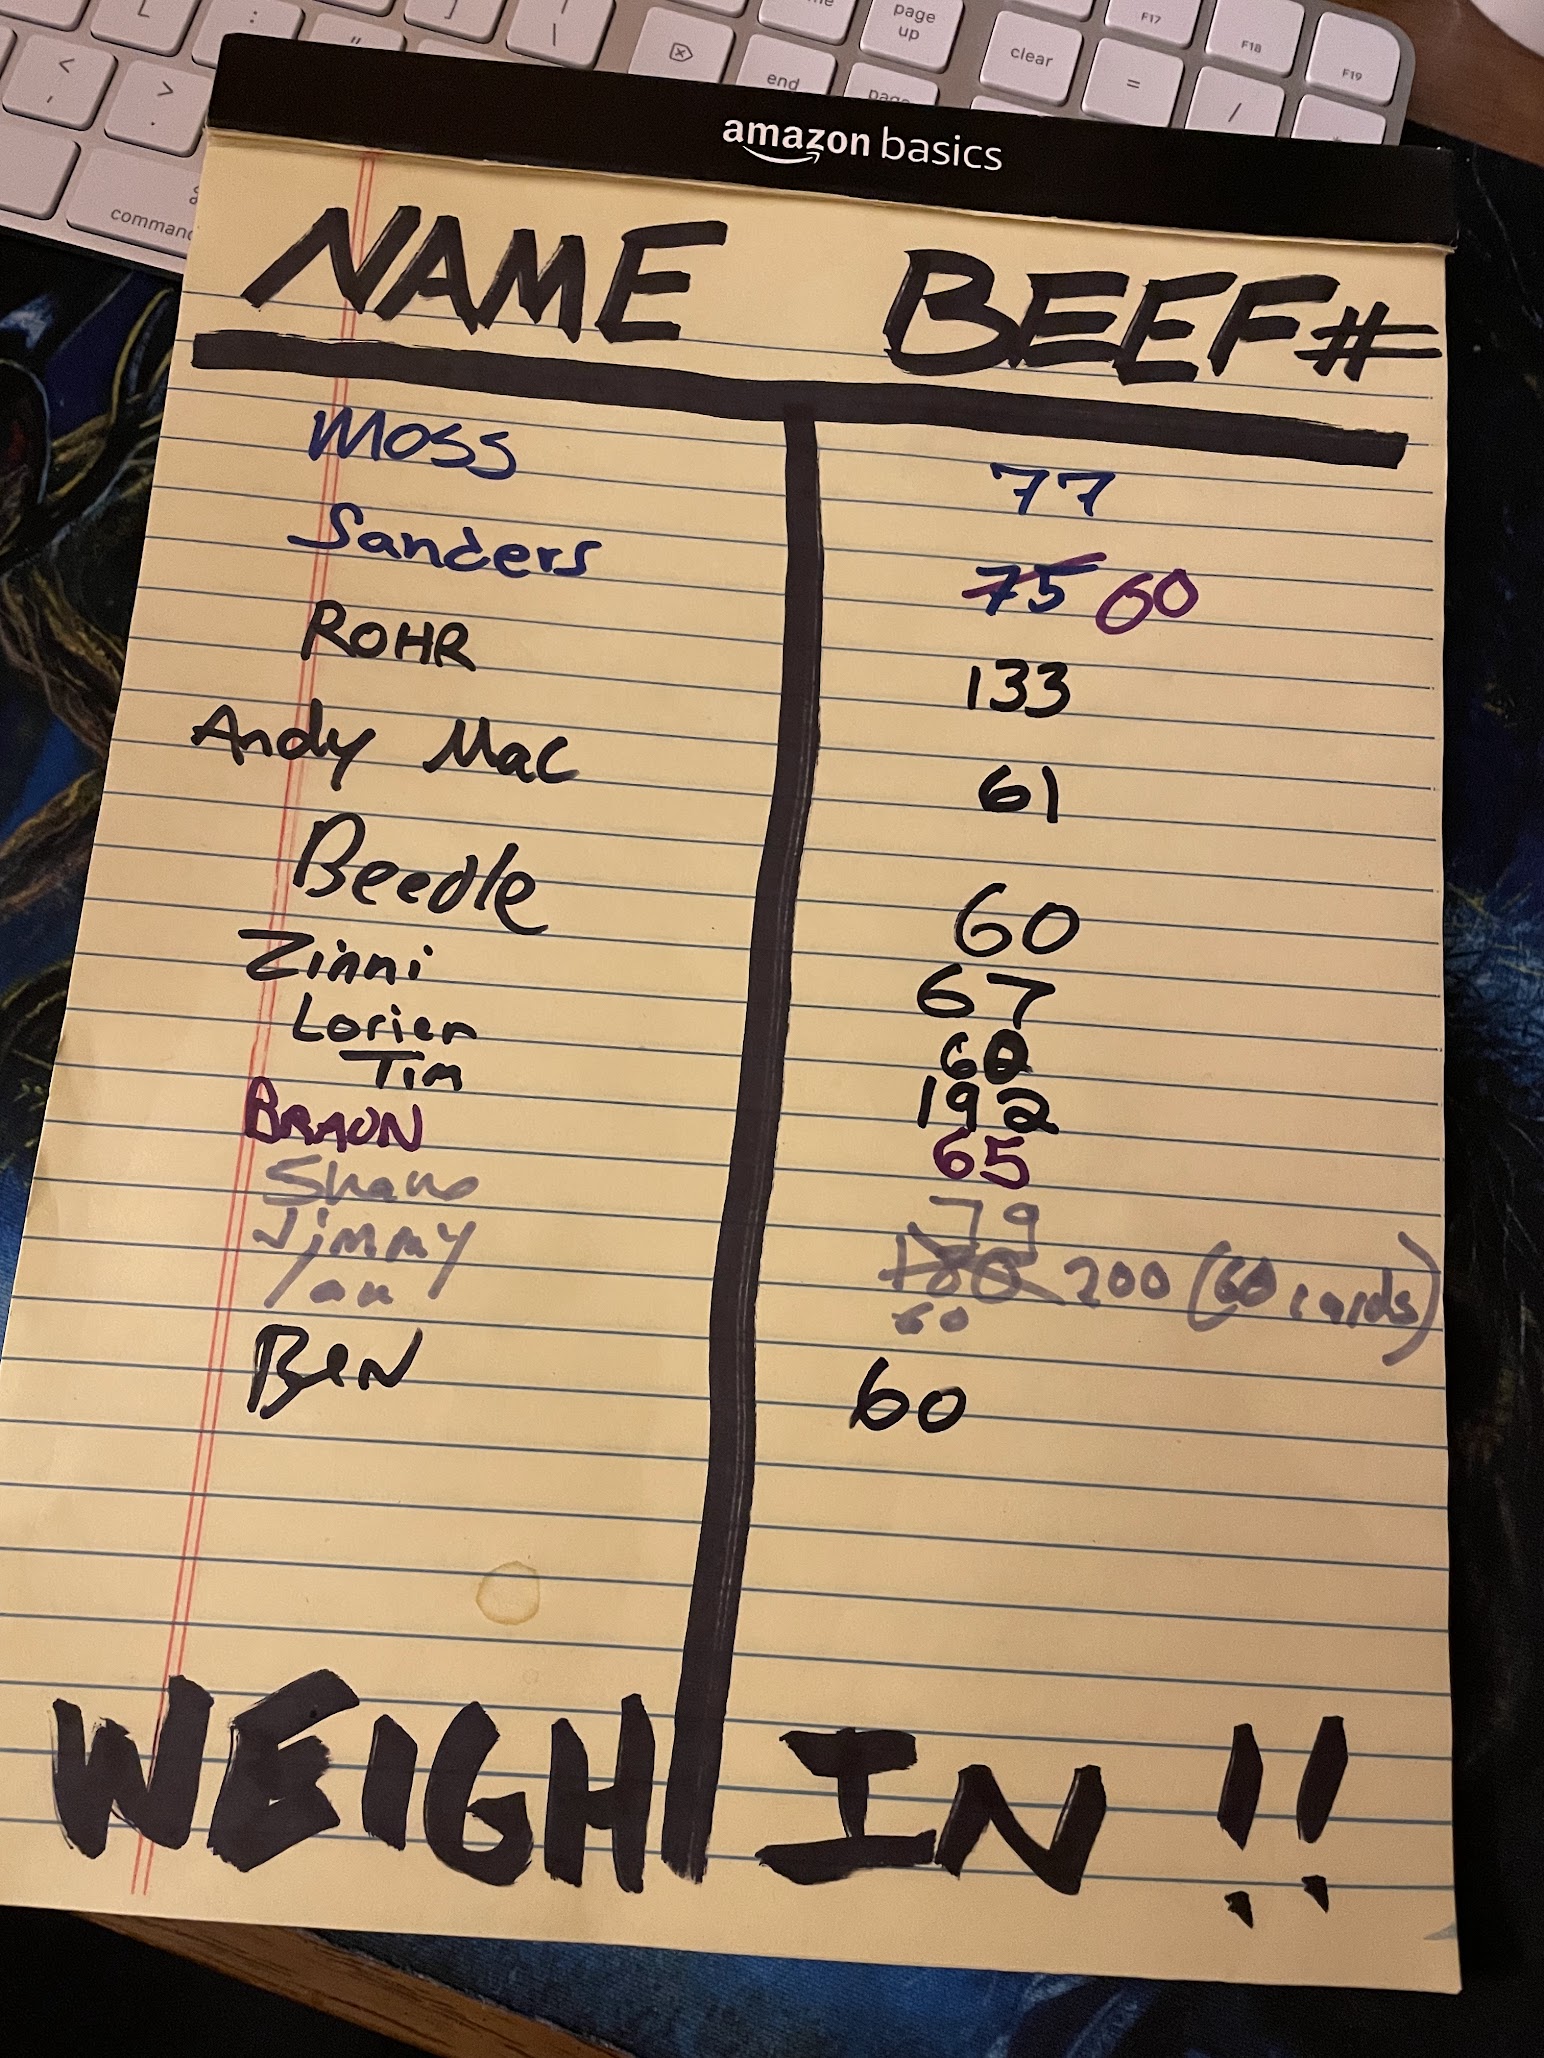 page
up
clear
F17
F18
F19
end
=
/
command
amazon basics
NAME BEEF#
Moss 77
Sanders 75 60
ROHR 133
Andy Mac 61
Beedle 60
Zinni 67
Lorien 60
Tim 192
BRAUN 65
79
Jimmy 180 200 (60 cards)
Ian 60
BEN 60
WEIGH IN !!